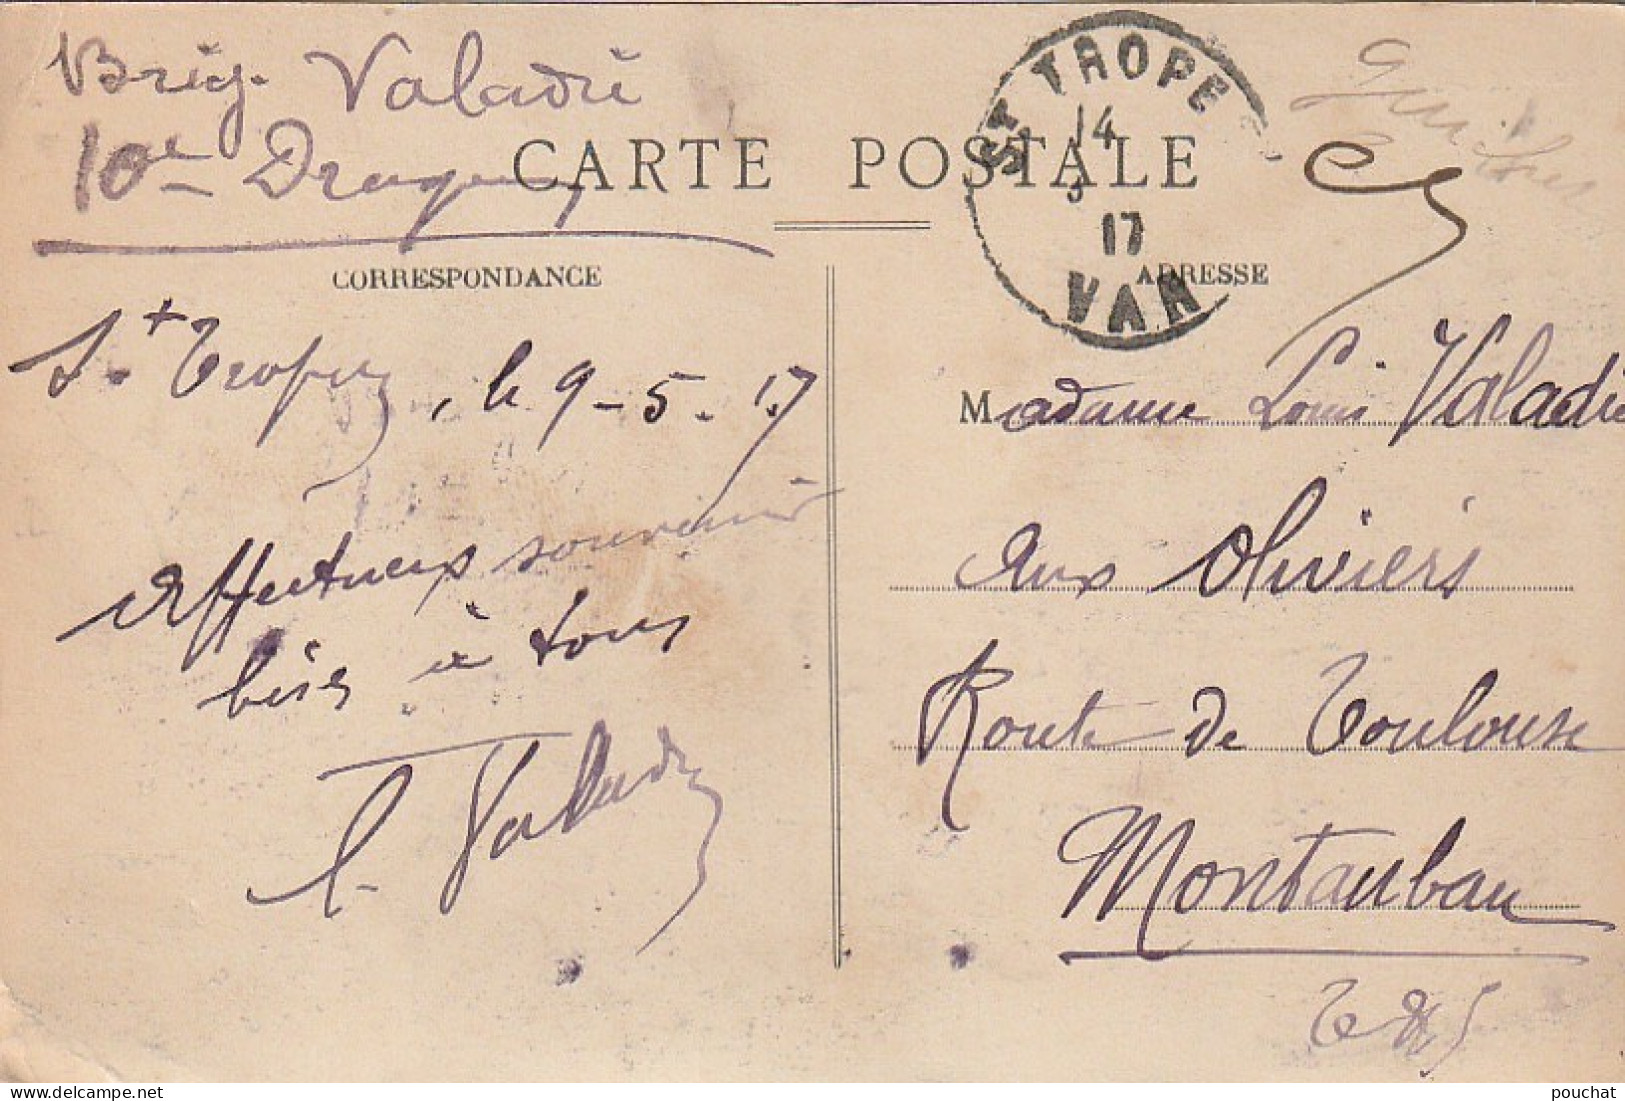 Brig. Valadié
10e Dragons
CARTE POSTALE
ST TROPE
14
5
17
VAR
CORRESPONDANCE
ADRESSE
St Tropez, le 9-5.17
Affectueux souvenir
à tous
L. Valadié
Madame Louis Valadié
aux Oliviers
Route de Toulouse
Montauban
T & G
pouchat